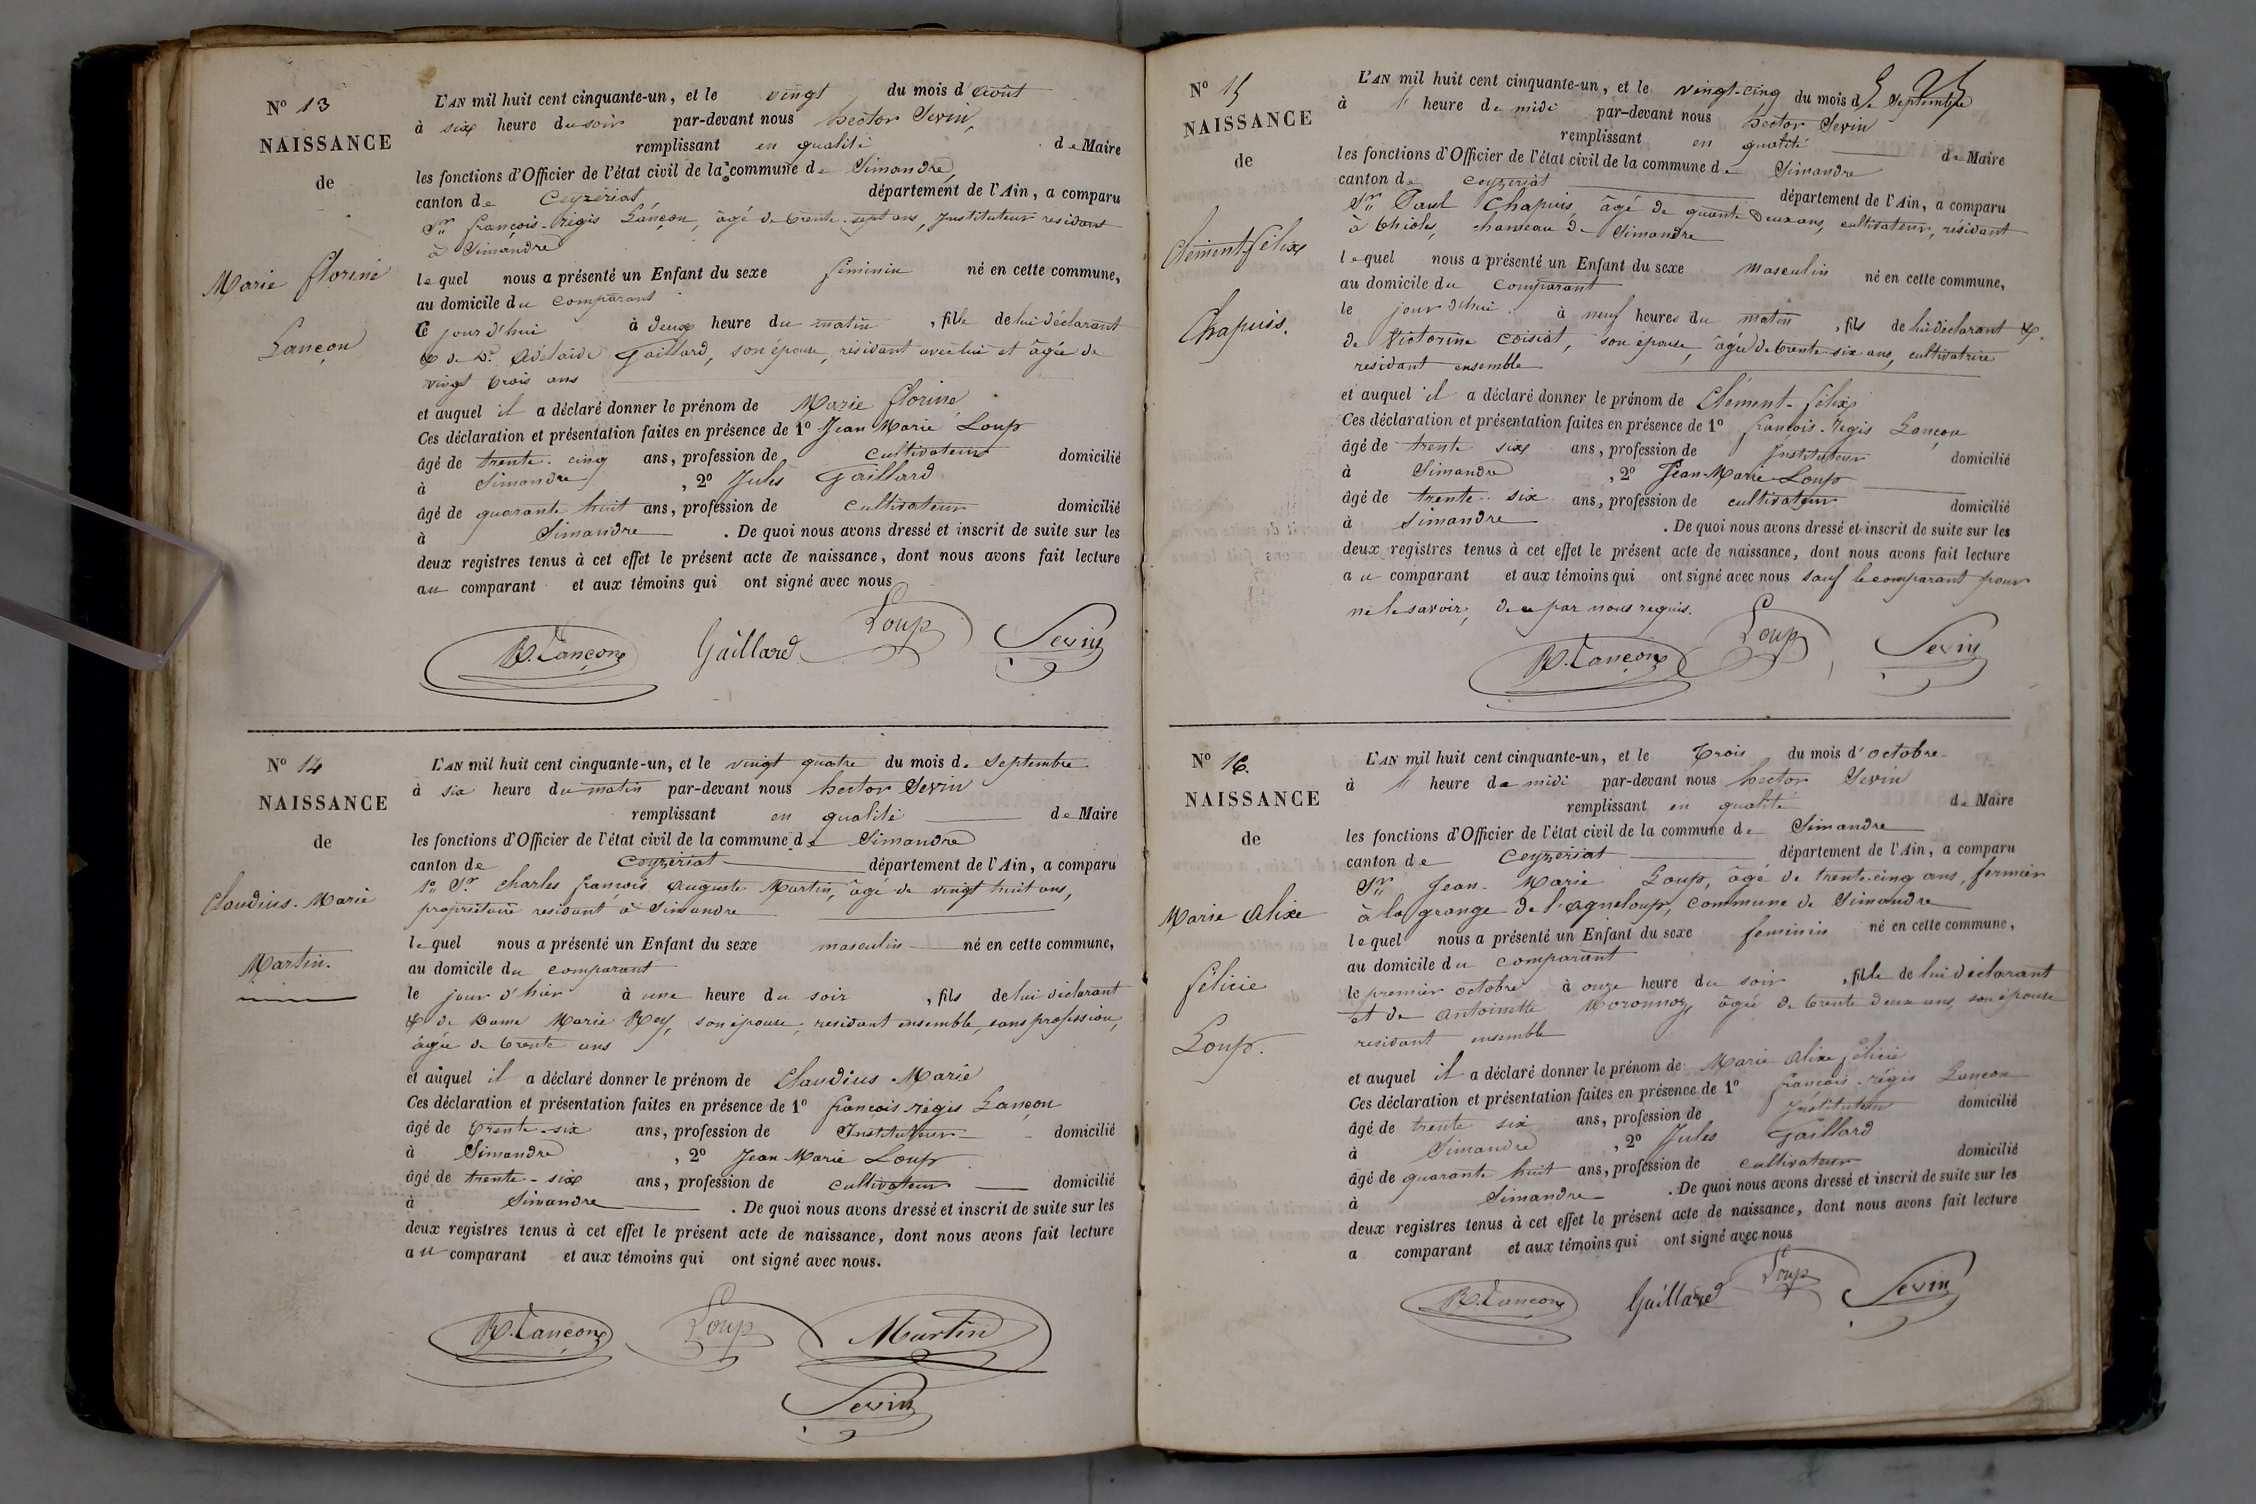 N° 13
NAISSANCE
de
Marie florine
Lançon
L'AN mil huit cent cinquante-un, et le vingt du mois d'Août
à six heure du soir par-devant nous hector Sevin,
remplissant en qualité de Maire
les fonctions d'Officier de l'état civil de la commune de Simandre,
canton de Ceyzeriat, département de l'Ain, a comparu
Sr françois-régis Lançon, âgé de trente-sept ans, Instituteur residant
à Simandre
lequel nous a présenté un Enfant du sexe féminin né en cette commune,
au domicile du comparant
Ce jour d'hui à deux heure du matin, fille de lui déclarant
& de De Adélaide Gaillard, son épouse, résidant avec lui et âgée de
vingt trois ans
et auquel il a déclaré donner le prénom de Marie florine
Ces déclaration et présentation faites en présence de 1° Jean Marie Loup
âgé de trente-cinq ans, profession de cultivateur domicilié
à Simandre, 2° Jules Gaillard
âgé de quarante huit ans, profession de cultivateur domicilié
à Simandre. De quoi nous avons dressé et inscrit de suite sur les
deux registres tenus à cet effet le présent acte de naissance, dont nous avons fait lecture
au comparant et aux témoins qui ont signé avec nous
R. Lançon Gaillard Loup Sevin
N° 14
NAISSANCE
de
Claudius-Marie
Martin.
L'AN mil huit cent cinquante-un, et le vingt quatre du mois de Septembre
à six heure du matin par-devant nous hector Sevin
remplissant en qualité de Maire
les fonctions d'Officier de l'état civil de la commune de Simandre
canton de Ceyzeriat département de l'Ain, a comparu
Sr Charles françois Auguste Martin, âgé de vingt huit ans,
propriétaire residant à Simandre
lequel nous a présenté un Enfant du sexe masculin né en cette commune,
au domicile du comparant
le jour d'hier à une heure du soir, fils de lui déclarant
& de Dame Marie Rey, son épouse residant ensemble, sans profession,
âgée de trente ans
et auquel il a déclaré donner le prénom de Claudius Marie
Ces déclaration et présentation faites en présence de 1° françois régis Lançon
âgé de trente-six ans, profession de Instituteur domicilié
à Simandre, 2° Jean Marie Loup
âgé de trente-six ans, profession de cultivateur domicilié
à Simandre. De quoi nous avons dressé et inscrit de suite sur les
deux registres tenus à cet effet le présent acte de naissance, dont nous avons fait lecture
au comparant et aux témoins qui ont signé avec nous.
R. Lançon Loup Martin
Sevin
N° 15
NAISSANCE
de
Clément-félix
Chapuis.
L'AN mil huit cent cinquante-un, et le vingt-cinq du mois de Septembre
à heure de midi par-devant nous hector Sevin
remplissant en qualité de Maire
les fonctions d'Officier de l'état civil de la commune de Simandre
canton de Ceyzeriat département de l'Ain, a comparu
Sr Paul Chapuis, âgé de quante deux ans, cultivateur, résidant
à thioles, hameau de Simandre
lequel nous a présenté un Enfant du sexe masculin né en cette commune,
au domicile du comparant
le jour d'hui à neuf heures du matin, fils de lui déclarant &
de Victorine Coisiat, son épouse, âgée de trente-six ans, cultivatrice
residant ensemble
et auquel il a déclaré donner le prénom de Clément-félix
Ces déclaration et présentation faites en présence de 1° françois-régis Lançon
âgé de trente six ans, profession de Instituteur domicilié
à Simandre, 2° Jean-Marie Loup
âgé de trente-six ans, profession de cultivateur domicilié
à Simandre. De quoi nous avons dressé et inscrit de suite sur les
deux registres tenus à cet effet le présent acte de naissance, dont nous avons fait lecture
au comparant et aux témoins qui ont signé avec nous sauf le comparant pour
ne le savoir, de ce par nous requis.
R. Lançon Loup Sevin
N° 16.
NAISSANCE
de
Marie Alixe
félicie
Loup.
L'AN mil huit cent cinquante-un, et le trois du mois d'octobre
à heure de midi par-devant nous hector Sevin
remplissant en qualité de Maire
les fonctions d'Officier de l'état civil de la commune de Simandre
canton de Ceyzeriat département de l'Ain, a comparu
Sr Jean-Marie Loup, âgé de trente-cinq ans, fermier
à la grange de l'Agneloup, commune de Simandre
lequel nous a présenté un Enfant du sexe feminin né en cette commune,
au domicile du comparant
le premier octobre à onze heure du soir, fille de lui déclarant
et de Antoinette âgée de trente deux ans, son épouse
residant ensemble
et auquel il a déclaré donner le prénom de Marie Alixe félicie
Ces déclaration et présentation faites en présence de 1° françois-régis Lançon
âgé de trente six ans, profession de Instituteur domicilié
à Simandre, 2° Jules Gaillard
âgé de quarante huit ans, profession de cultivateur domicilié
à Simandre. De quoi nous avons dressé et inscrit de suite sur les
deux registres tenus à cet effet le présent acte de naissance, dont nous avons fait lecture
a comparant et aux témoins qui ont signé avec nous
R. Lançon Gaillard Loup Sevin